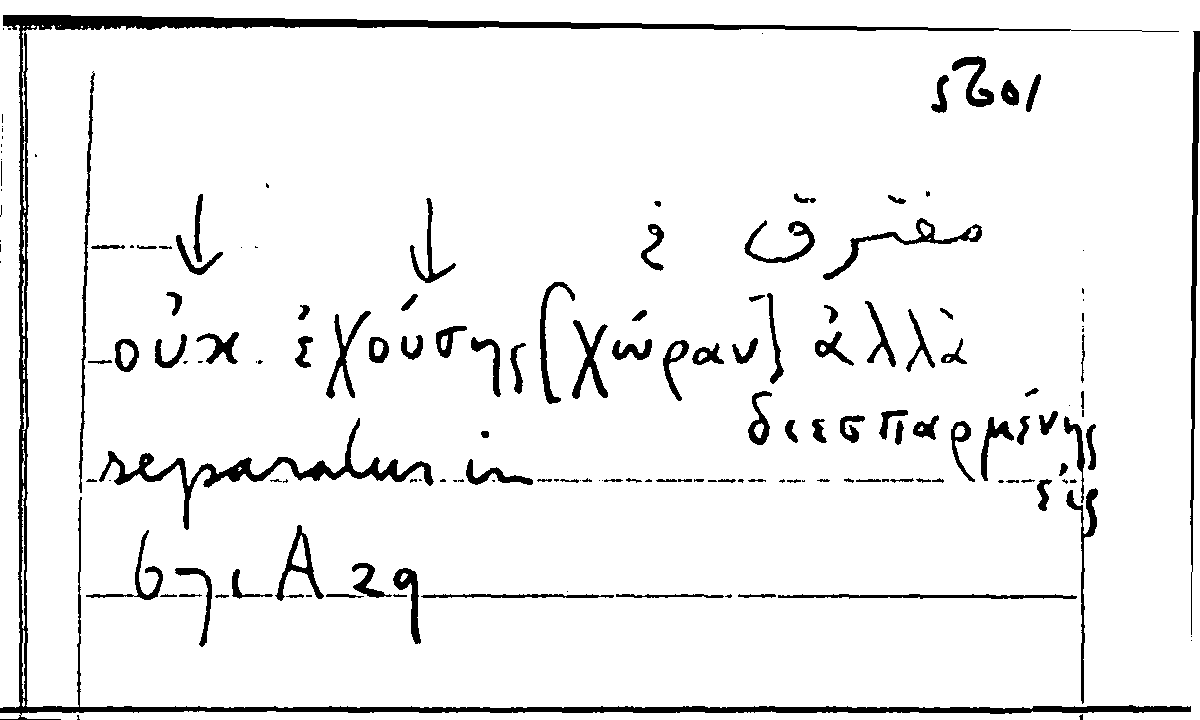 مفترق في
οὐκ ἐχούσης [χώραν] ἀλλὰ
διεσπαρμένης
separatus in
εἰς
671 A 29